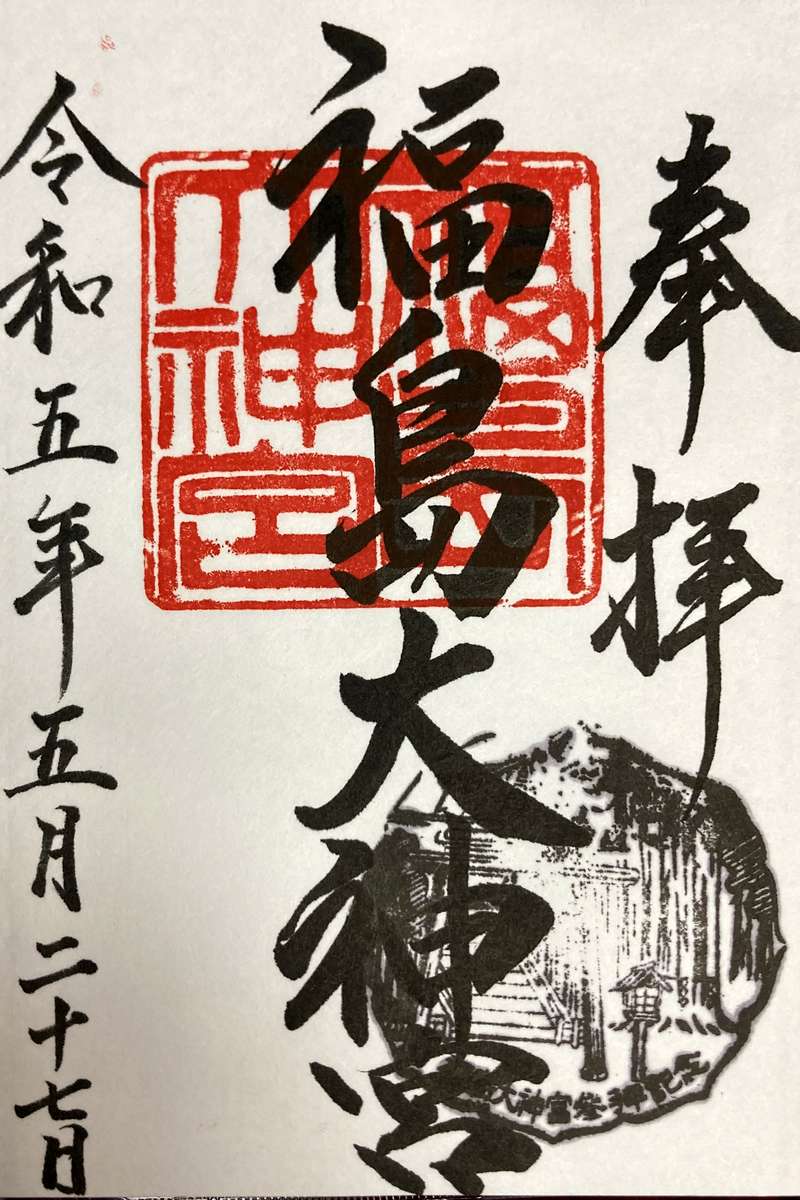 奉拝
福島大神宮
福島
大神宮
大神宮参拝記念
令和五年五月二十七日